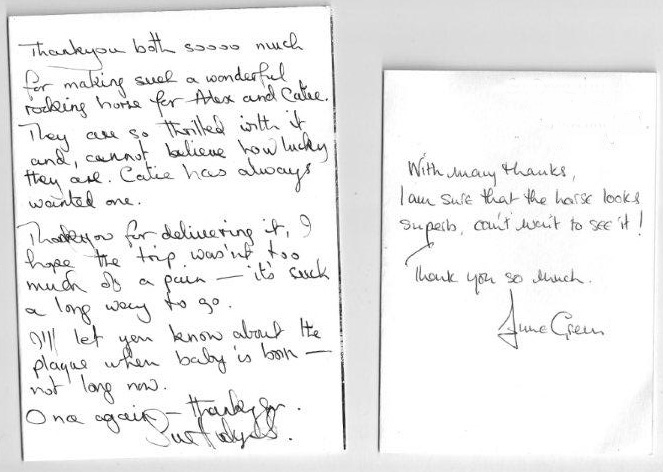 Thankyou both soooo much
for making such a wonderful
rocking horse for Alex and Catie.
They are so thrilled with it
and, cannot believe how lucky
they are. Catie has always
wanted one.
Thankyou for delivering it, I
hope the trip was'nt too
much of a pain — it's such
a long way to go.
I'll let you know about the
plaque when baby is born —
not long now.
Once again — thankyou.
Sue
With many thanks,
I am sure that the horse looks
superb, can't wait to see it!
Thank you so much.
June Green